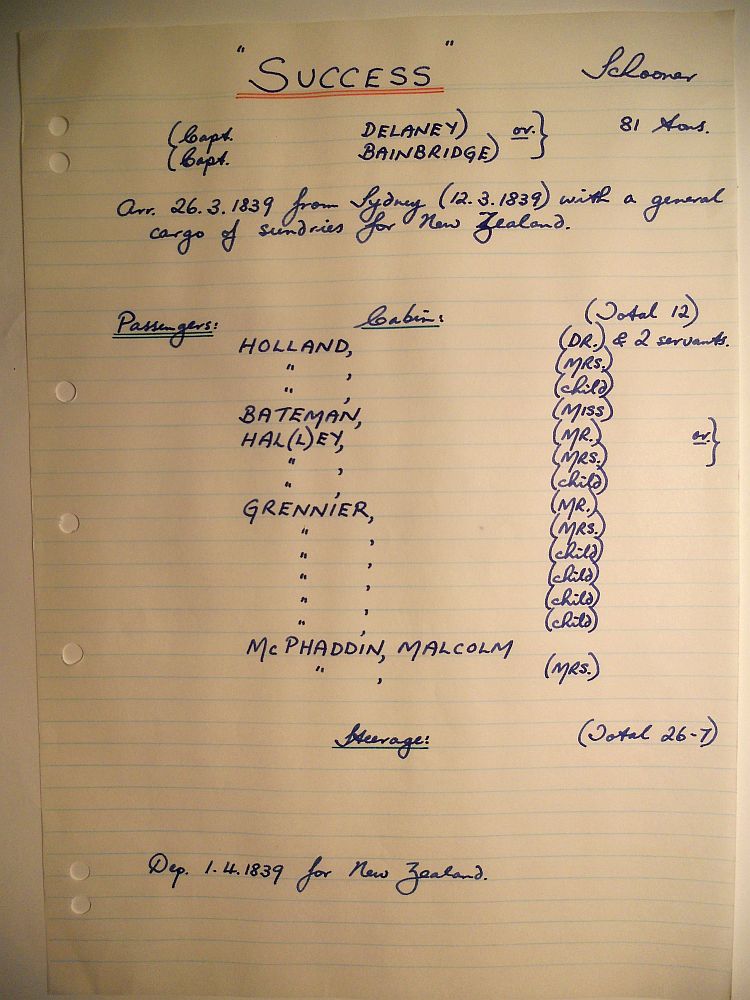 "SUCCESS" Schooner
(Capt. DELANEY) or } 81 tons.
(Capt. BAINBRIDGE)
Arr. 26.3.1839 from Sydney (12.3.1839) with a general
cargo of sundries for New Zealand.
Passengers: Cabin: (Total 12)
HOLLAND, (DR.) & 2 servants.
" , (MRS.)
" , (child)
BATEMAN, (MISS)
HAL(L)EY, (MR.) or }
" , (MRS.)
" , (child)
GRENNIER, (MR.)
" , (MRS.)
" , (child)
" , (child)
" , (child)
" , (child)
McPHADDIN, MALCOLM
" , (MRS.)
Steerage: (Total 26-7)
Dep. 1.4.1839 for New Zealand.